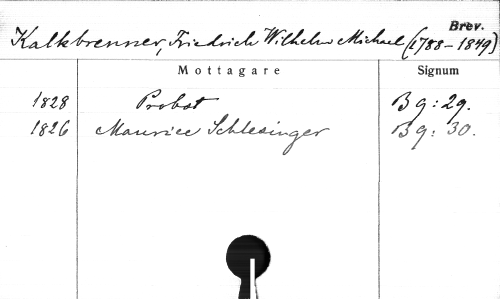 Brev.
Kalkbrenner, Friedrich Wilhelm Michael (1788-1849)
Mottagare Signum
1828 Probst B g: 29.
1826 Maurice Schlesinger B g: 30.